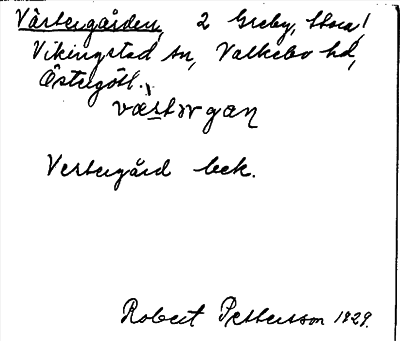 Västergården, 2 Greby, Stora!
Vikingstad sn, Valkebo hd,
Östergötl.
væstərgaɳ
Vestergård bek.
Robert Pettersson 1929.